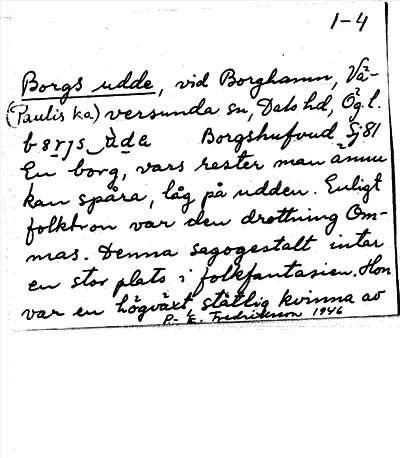 1-4
Borgs udde, vid Borghamn, Vä-
(Paulis ka) versunda sn, Dals hd, Ög. l.
Borgshufvud Sj81
En borg, vars rester man ännu
kan spåra, låg på udden. Enligt
folktron var den drottning Om-
mas. Denna sagogestalt intar
en stor plats i folkfantasien. Hon
var en högväxt, ståtlig kvinna av
R. E. Fredriksson 1946